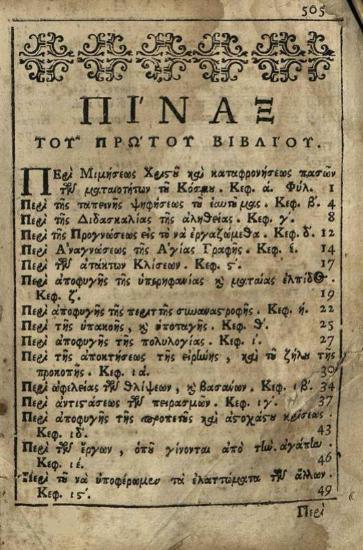 505
ΠΙ΄ΝΑΞ
ΤΟΥ ΠΡΩ΄ΤΟΥ ΒΙΒΛΙ΄ΟΥ.
ΠΕρὶ Μιμήσεως Χριστοῦ καὶ καταφρονήσεως πασῶν
τῶν ματαιοτήτων τοῦ Κόσμου. Κεφ. ά. Φύλ. 1
Περὶ τῆς ταπεινῆς ψηφήσεως τοῦ ἑαυτοῦ μας. Κεφ. β΄. 4
Περὶ τῆς Διδασκαλίας τῆς ἀληθείας. Κεφ. γ΄. 8
Περὶ τῆς Προγνώσεως εἰς τὸ νὰ ἐργαζώμεθα. Κεφ. δ΄. 12
Περὶ Ἀναγνώσεως τῆς Ἁγίας Γραφῆς. Κεφ. έ. 14
Περὶ τῶν ἀτάκτων Κλίσεων. Κεφ. ϛ΄. 17
Περὶ ἀποφυγῆς τῆς ὑπερηφανίας ϗ ματαίας ἐλπίδος.
Κεφ. ζ΄. 19
Περὶ ἀποφυγῆς τῆς περιττῆς συναναστροφῆς. Κεφ. ή. 22
Περὶ τῆς ὑπακοῆς, ϗ ὑποταγῆς. Κεφ. θ΄. 25
Περὶ ἀποφυγῆς τῆς πολυλογίας. Κεφ. ί. 27
Περὶ τῆς ἀποκτήσεως τῆς εἰρήνης, καὶ τοῦ ζήλου τῆς
προκοπῆς. Κεφ. ιά. 30
Περὶ ὠφελείας τῶν θλίψεων, ϗ βασάνων. Κεφ. ιβ΄. 34
Περὶ ἀντιστάσεως τῶν πειρασμῶν. Κεφ. ιγ΄. 37
Περὶ ἀποφυγῆς τῆς προπετοῦς καὶ ἀστοχάστου κρίσεως.
Κεφ. ιδ΄. 43
Περὶ τῶν ἔργων, ὁποῦ γίνονται ἀπὸ τὴν ἀγάπην.
Κεφ. ιέ. 46
Περὶ τοῦ νὰ ὑποφέρωμεν τὰ ἐλαττώματα τῶν ἄλλων.
Κεφ. ιϛ΄. 49
Περὶ